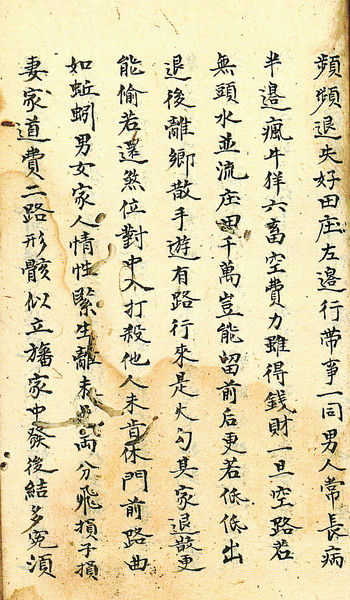 頻頻退失好田庄左邉行帶事一同男人常長病
半邉瘋牛佯六畜空費力雖得錢財一旦空路若
無頭水並流庄田千萬豈能留前后更若低低出
退後離鄉散手遊有路行來是火勾其家退散更
能偷若還煞位對中入打殺他人未肯休門前路曲
如蚯蚓男女家人情性緊生離未 兩分飛損子損
妻家道費二路形骸似立旛家中發後結多冤須